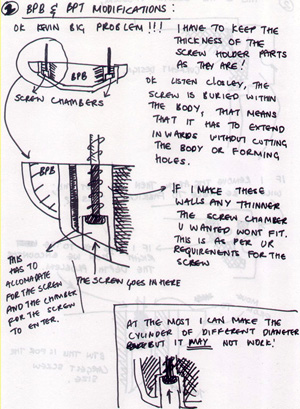 2 BPB & BPT MODIFICATIONS:
OK KEVIN BIG PROBLEM!!!
I HAVE TO KEEP THE
THICKNESS OF THE
SCREW HOLDER PARTS
AS THEY ARE!
BPB
SCREW CHAMBERS
OK LISTEN CLOSLEY, THE
SCREW IS BURIED WITHIN
THE BODY, THAT MEANS
THAT IT HAS TO EXTEND
INWARDS WITHOUT CUTTING
THE BODY OR FORMING
HOLES.
BPB
IF I MAKE THESE
WALLS ANY THINNER
THE SCREW CHAMBER
U WANTED WONT FIT.
THIS IS AS PER UR
REQUIRENTS FOR THE
SCREW
THIS
HAS TO
ACCOMADATE
FOR THE SCREW
AND THE CHAMBER
FOR THE SCREW
TO ENTER.
THE SCREW GOES IN HERE
AT THE MOST I CAN MAKE THE
CYLINDER OF DIFFERENT DIAMETER
BUT IT MAY NOT WORK!